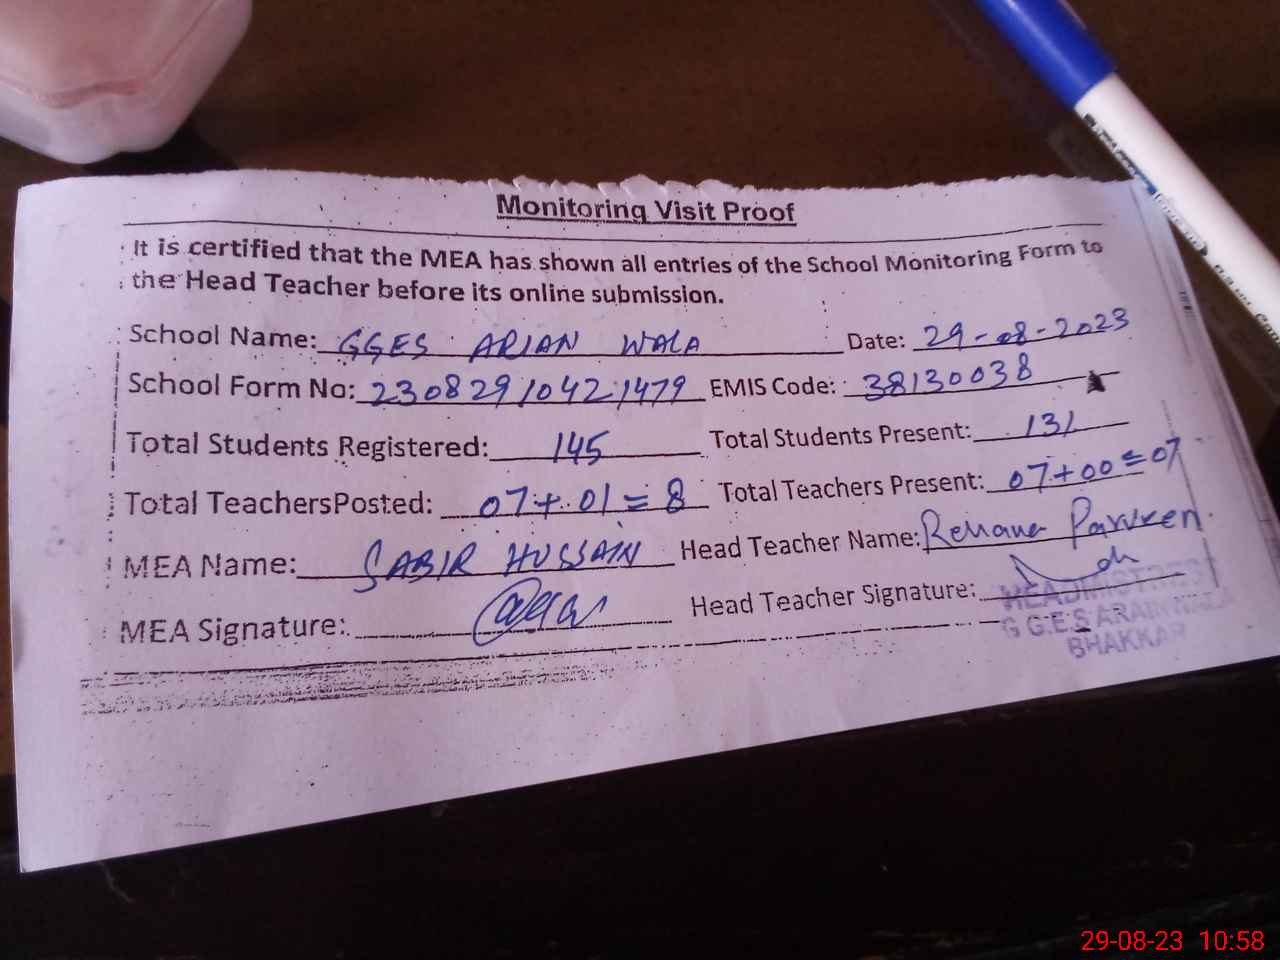 Monitoring Visit Proof
It is certified that the MEA has shown all entries of the School Monitoring Form to
the Head Teacher before its online submission.
School Name: GGES ARIAN WALA Date: 29-08-2023
School Form No: 230829104211479 EMIS Code: 38130038
Total Students Registered: 145 Total Students Present: 131
Total TeachersPosted: 07+01=8 Total Teachers Present: 07+00=07
MEA Name: SABIR HUSSAIN Head Teacher Name: Rehana Parveen
MEA Signature: Head Teacher Signature:
HEADMISTRESS
G G.E.S ARAIN WALA
BHAKKAR
29-08-23 10:58